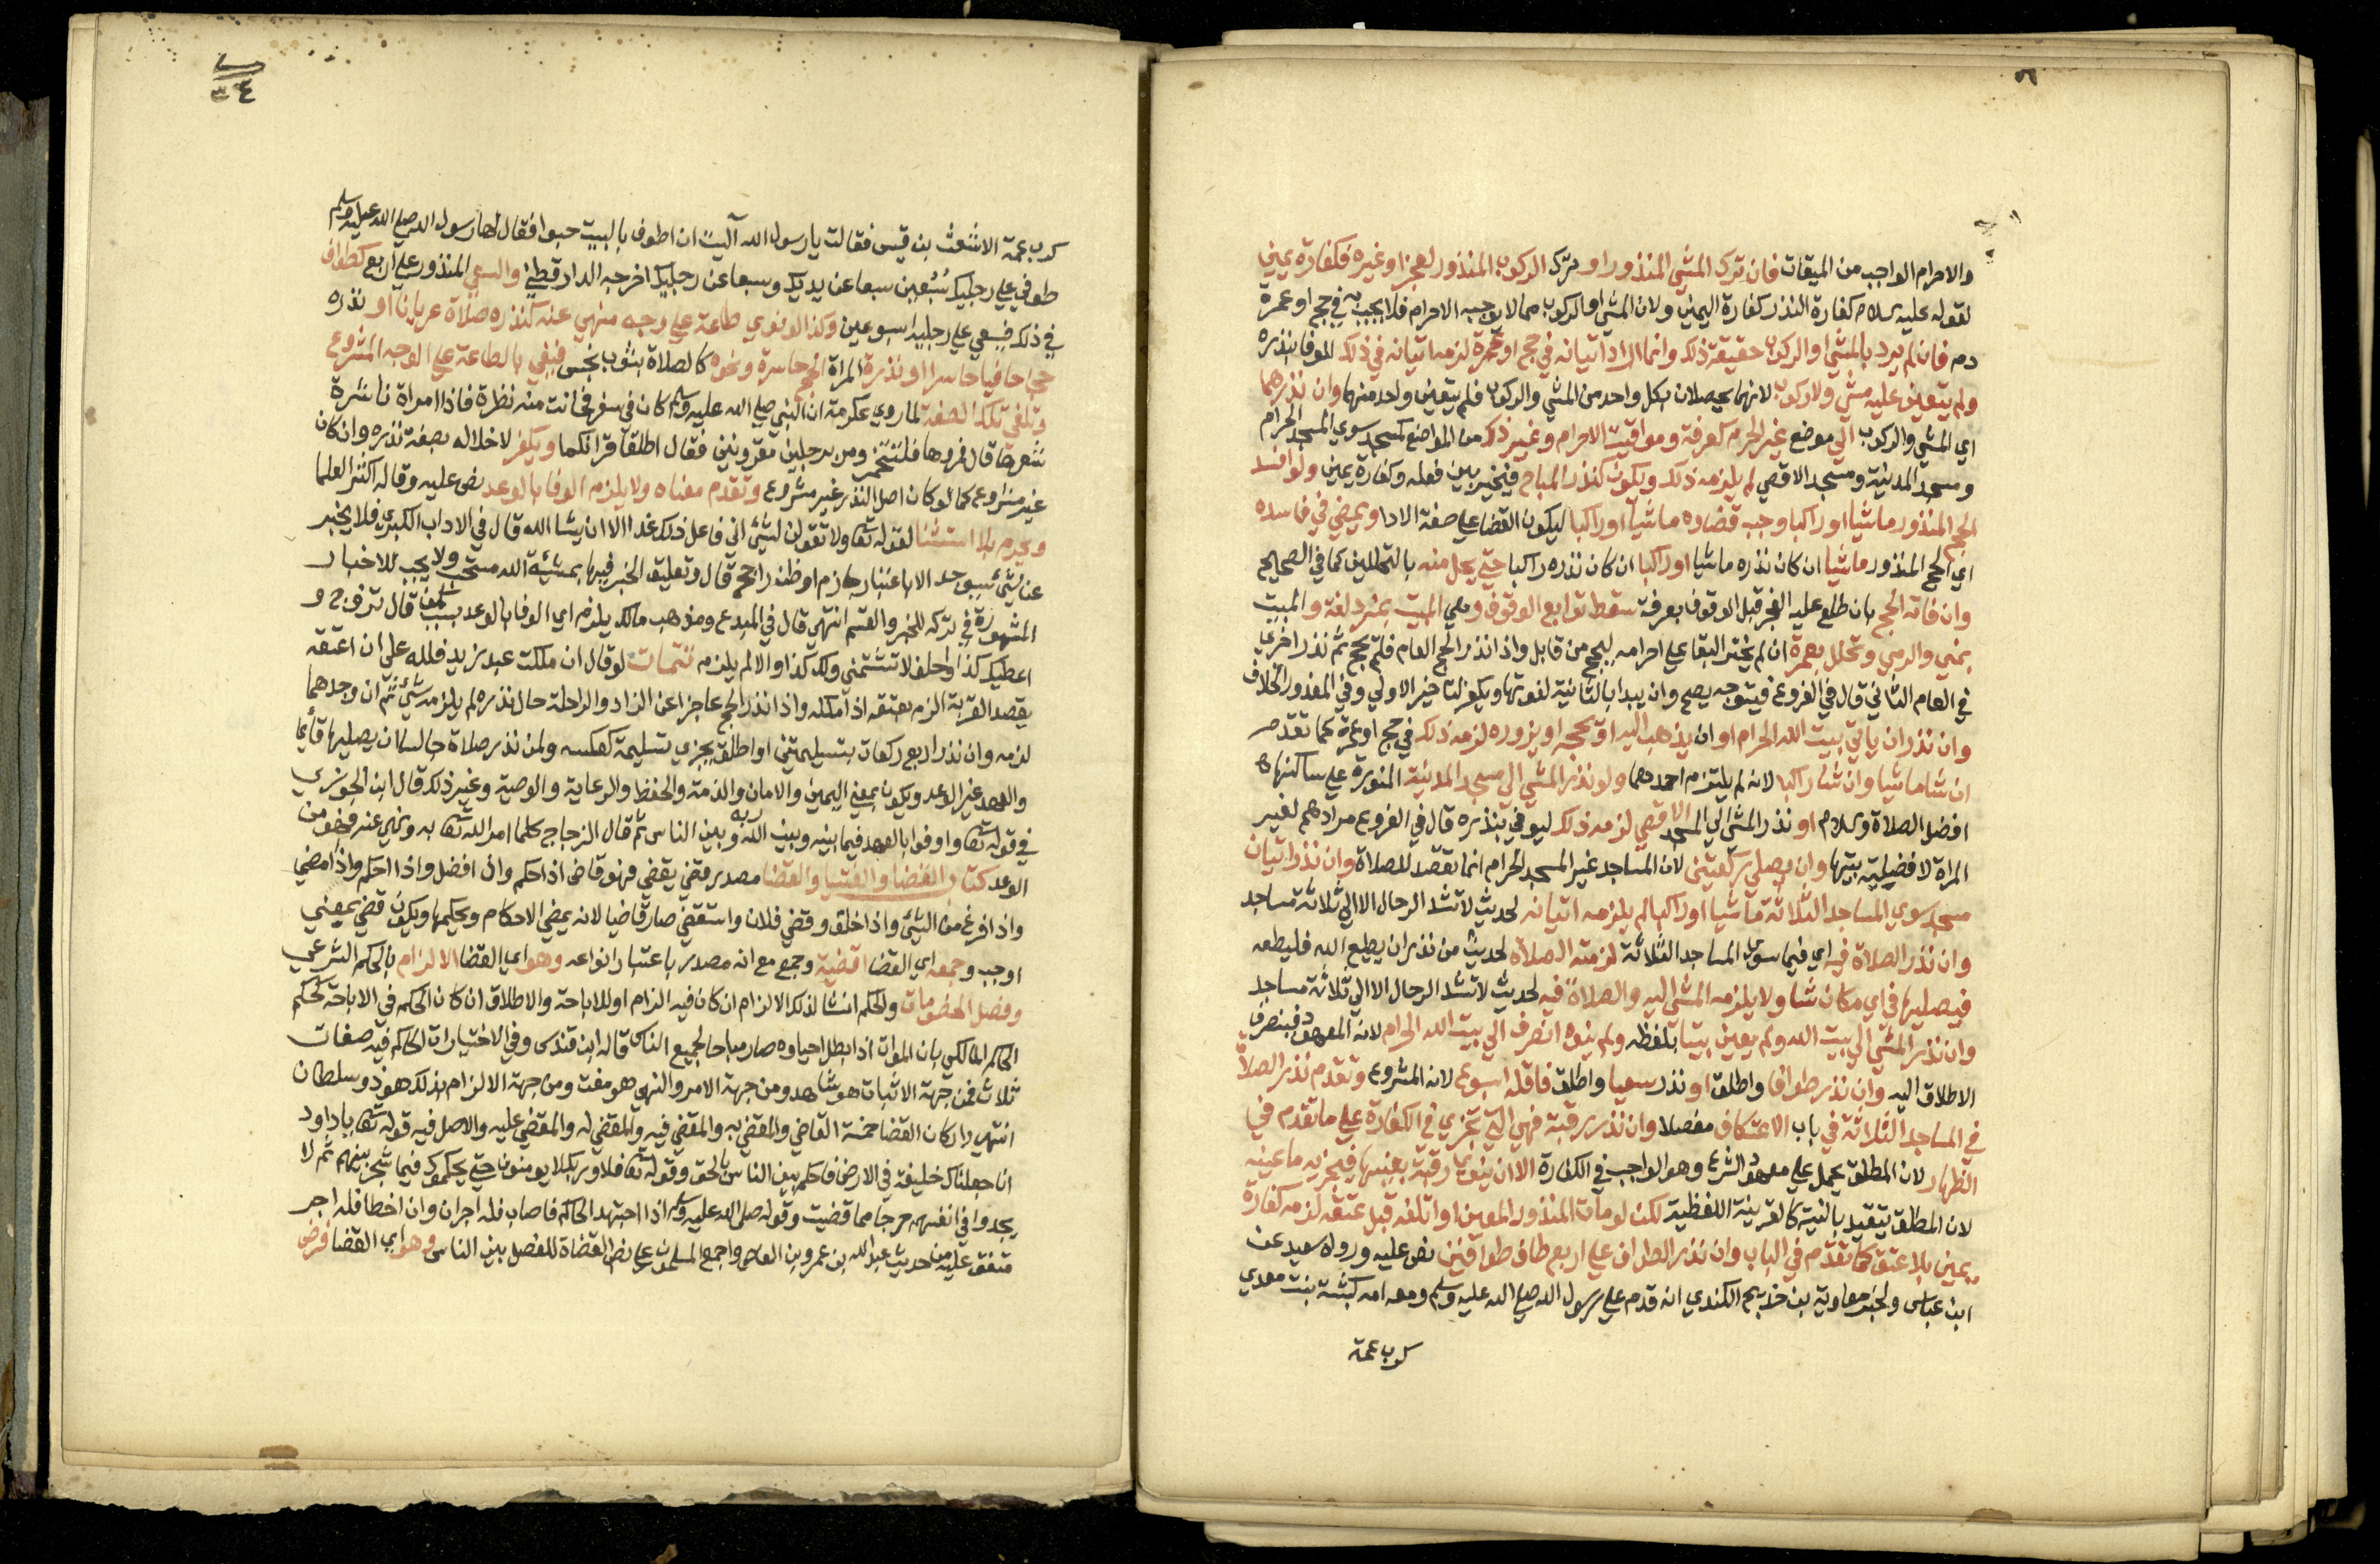 والاحرام الواجب من الميقات فان ترك المشي المنذور او ترك الركوب المنذور لعجز او غيره فكفارة يمين
لقوله عليه السلام كفارة النذر كفارة اليمين ولان المشي او الركوب مما لا يوجبه الاحرام فلا يجب به في حج او عمرة
دم فان لم يرد بالمشي او الركوب حقيقة ذلك وانما اراد اتيانه في حج او عمرة لزمه اتيانه في ذلك للوفا بنذره
ولم يتعين عليه مشي ولا ركوب لانهما يحصلان بكل واحد من المشي والركوب فلم يتعين واحد منهما وان نذرهما
اي المشي والركوب الي موضع غير الحرم كعرفة ومواقيت الاحرام وغير ذلك من المواضع كمسجد سوي المسجد الحرام
ومسجد المدينة ومسجد الاقصي لم يلزمه ذلك ويكون كنذر المباح فيخير بين فعله وكفارة يمين ولو افسد
الحج المنذور ماشيا او راكبا وجب قضاوه ماشيا او راكبا ليكون القضا علي صفة الادا ويمضي في فاسده
اي الحج المنذور ماشيا ان كان نذره ماشيا او راكبا ان كان نذره راكبا حتي يحل منه بالتحللين كما في الصحيح
وان فاته الحج بان طلع عليه الفجر قبل الوقوف بعرفة سقط توابع الوقوف وهي المبيت بمزدلفة والمبيت
بمني والرمي وتحلل بعمرة ان لم يختر البقا علي احرامه ليحج من قابل واذا نذر الحج العام فلم يحج ثم نذر اخري
في العام الثاني قال في الفروع فيتوجه يصح وان يبدا بالثانية لفوتها ويكفر لتاخير الاولي وفي المعذور الخلاف
وان نذر ان ياتي بيت الله الحرام او ان يذهب اليه او يحجه او يزوره لزمه ذلك في حج او عمرة كما تقدم
ان شا ماشيا وان شا راكبا لانه لم يلتزم احدهما ولو نذر المشي الي مسجد المدينة المنورة علي ساكنها
افضل الصلاة والسلام او نذر المشي الي المسجد الاقصي لزمه ذلك ليوفي بنذره قال في الفروع مرادهم لغير
المراة لافضلية بيتها وان يصلي ركعتين لان المساجد غير المسجد الحرام انما تقصد للصلاة وان نذر اتيان
مسجد سوي المساجد الثلاثة ماشيا او راكبا لم يلزمه اتيانه لحديث لا تشد الرحال الا الي ثلاثة مساجد
وان نذر الصلاة فيه اي فيما سوي المساجد الثلاثة لزمته الصلاة لحديث من نذر ان يطيع الله فليطعه
فيصليها في اي مكان شا ولا يلزمه المشي اليه والصلاة فيه لحديث لا تشد الرحال الا الي ثلاثة مساجد
وان نذر المشي الي بيت الله ولم يعين بيتا بلفظه ولم ينوه انصرف الي بيت الله الحرام لانه المعهود فينصرف
الاطلاق اليه وان نذر طوافا واطلق او نذر سعيا واطلق فاقله اسبوع لانه المشروع وتقدم نذر الصلاة
في المساجد الثلاثة في باب الاعتكاف مفصلا وان نذر رقبة فهي التي تجزي في الكفارة علي ما تقدم في
الظهار لان المطلق يحمل علي معهود الشرع وهو الواجب في الكفارة الا ان ينوي رقبة بعينها فيجزيه ما عينه
لان المطلق يتقيد بالنية كالقرينة اللفظية لكن لو مات المنذور المعين او اتلفه قبل عتقه لزمه كفارة
يمين بلا عتق كما تقدم في الباب وان نذر الطواف علي اربع طاف طوافين نص عليه ورواه سعيد عن
ابن عباس ولخبر معاوية بن خديج الكندي انه قدم علي رسول الله صلي الله عليه وسلم ومعه امه كبشة بنت معدي
كرب عمة
٣٤
كرب عمة الاشعث بن قيس فقالت يا رسول الله آليت ان اطوف بالبيت حبوا فقال لها رسول الله صلي الله عليه وسلم
طوفي علي رجليك سُبْعين سبعا عن يديك وسبعا عن رجليك اخرجه الدارقطني والسعي المنذور علي اربع كطواف
في ذلك فيسعي علي رجليه اسبوعين وكذا لو نوي طاعة علي وجه منهي عنه كنذره صلاة عريانا او نذره
حجا حافيا حاسرا او نذرة المراة الحج حاسرة ونحوه كالصلاة بثوب نجس فيفي بالطاعة علي الوجه المشروع
وتلغي تلك الصفة لما روي عكرمة ان النبي صلي الله عليه وسلم كان في سفر فحانت منه نظرة فاذا امراة ناشرة
شعرها قال فمروها فلتختمر ومر برجلين مقرونين فقال اطلقا قرانكما ويكفر لاخلاله بصفة نذره وان كان
غير مشروع كما لو كان اصل النذر غير مشروع وتقدم معناه ولا يلزم الوفا بالوعد نص عليه وقاله اكثر العلما
ويحرم بلا استثنا لقوله تعا ولا تقولن لشيء اني فاعل ذلك غدا الا ان يشا الله قال في الاداب الكبري فلا يخبر
عن شيء سيوجد الا باعتبار جازم او ظن راجح قال وتعليق الخبر فيها بمشيئة الله مستحب ولا يجب للاخبار
المشهورة في تركه للخبر والقسم انتهي قال في المبدع ومذهب مالك يلزم اي الوفا بالوعد بسبب كمن قال تزوج و
اعطيك كذا واحلف لا تشتمني ولك كذا والا لم يلزمه تتمات لو قال ان ملكت عبد زيد فلله علي ان اعتقه
يقصد القربة الزم بعتقه اذا ملكه واذا نذر الحج عاجزا عن الزاد والراحلة حال نذره لم يلزمه شيء ثم ان وجدهما
لزمه وان نذر اربع ركعات بتسليمتين او اطلق يجزي بتسليمة كعكسه ولمن نذر صلاة جالسا ان يصليها قائما
والعهد غير الوعد ويكون بمعني اليمين والامان والذمة والحفظ والرعاية والوصية وغير ذلك قال ابن الجوزي
في قوله تعا واوفوا بالعهد فيما بينه وبين ربه وبين الناس ثم قال الزجاج كلما امر الله تعا به ونهي عنه فهو من
الوعد كتاب القضا والفتيا والقضا مصدر قضي يقضي فهو قاض اذا حكم واذا فصل واذا احكم واذا امضي
واذا فرغ من الشيء واذا خلق وقضي فلان واستقضي صار قاضيا لانه يمضي الاحكام ويحكمها ويكون قضي بمعني
اوجب وجمعه اي القضا اقضية وجمع مع انه مصدر باعتبار انواعه وهو اي القضا الالزام بالحكم الشرعي
وفصل الخصومات والحكم انشا لذلك الالزام ان كان فيه الزام او للاباحة والاطلاق ان كان الحكم في الاباحة كحكم
الحاكم المالكي بان الموات اذا بطل احياوه صار مباحا لجميع الناس قاله ابن قندس وفي الاختيارات الحاكم فيه صفات
ثلاث فمن جهة الاثبات هو شاهد ومن جهة الامر والنهي هو مفت ومن جهة الالزام بذلك هو ذو سلطان
انتهي واركان القضا خمسة القاضي والمقضي به والمقضي فيه والمقضي له والمقضي عليه والاصل فيه قوله تعا يا داود
انا جعلناك خليفة في الارض فاحكم بين الناس بالحق وقوله تعا فلا وربك لا يومنون حتي يحكموك فيما شجر بينهم ثم لا
يجدوا في انفسهم حرجا مما قضيت وقوله صلي الله عليه وسلم اذا اجتهد الحاكم فاصاب فله اجران وان اخطا فله اجر
متفق عليه من حديث عبد الله بن عمرو بن العاص واجمع المسلمون علي نصب القضاة للفصل بين الناس وهو اي القضا فرض